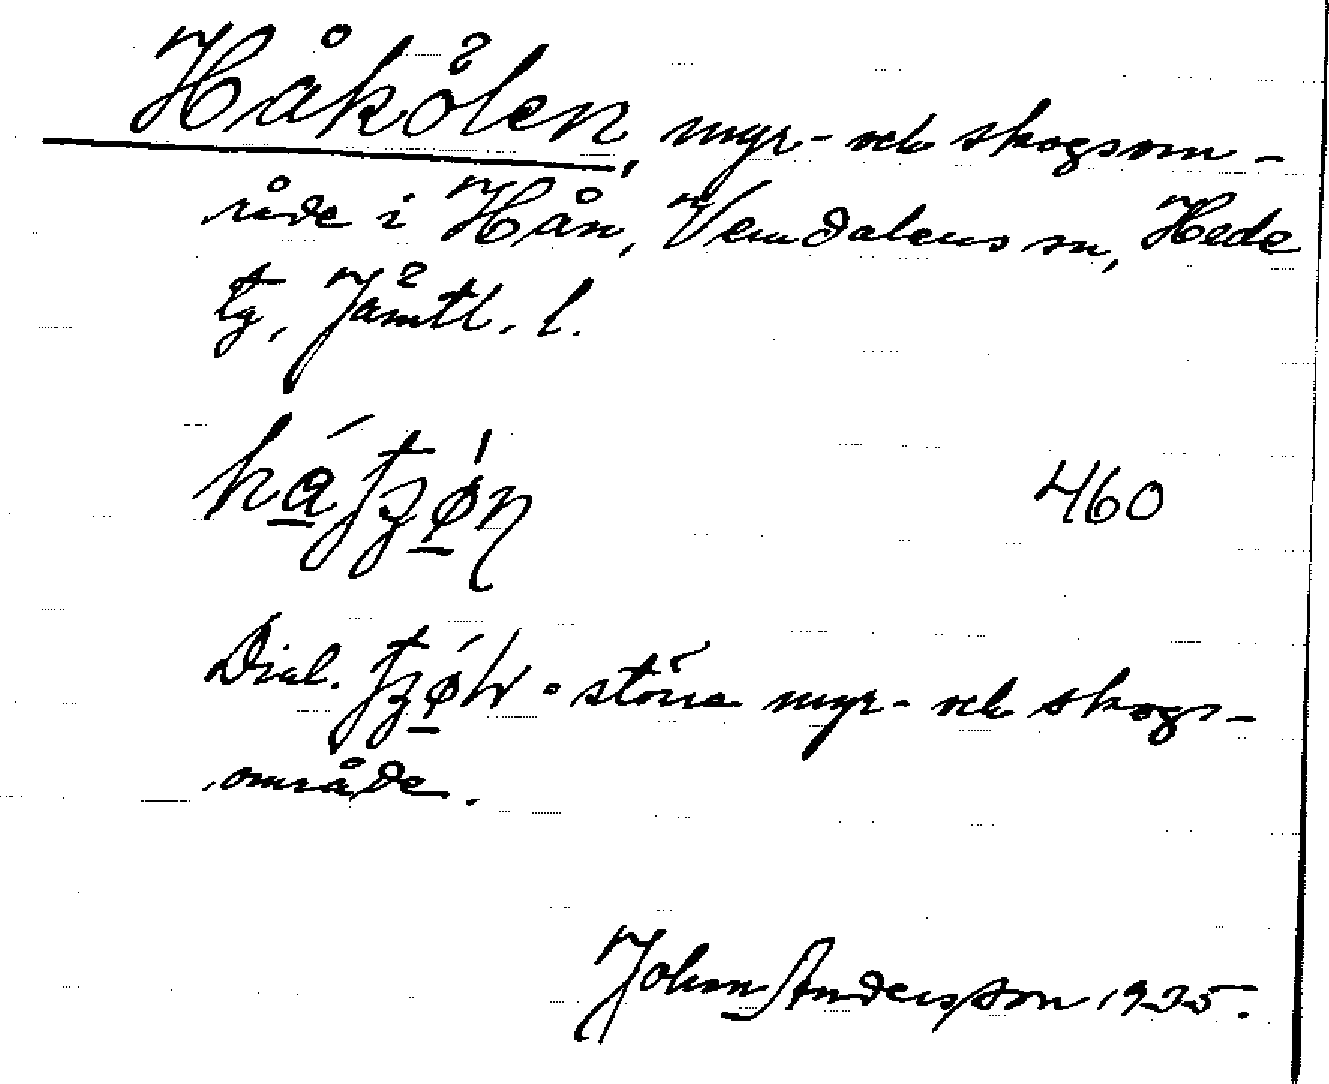 Håkölen, myr- och skogsom-
råde i Hån, Vemdalens sn, Hede
tg, Jämtl. l.
460
Dial. = större myr- och skogs-
område.
John Andersson 1935.